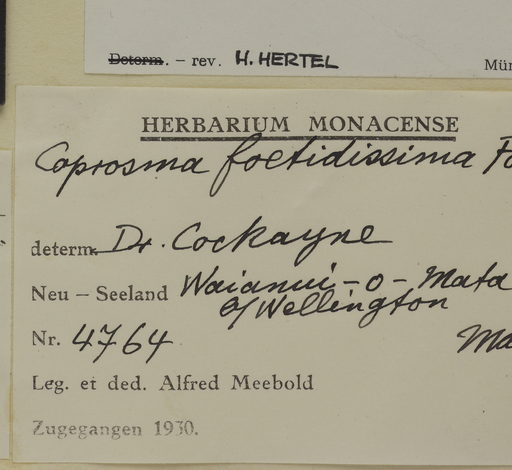 Determ. – rev. H. HERTEL Mün
HERBARIUM MONACENSE
Coprosma foetidissima Fo
determ. Dr. Cockayne
Neu – Seeland Wainui-o-Mata
o/Wellington
Nr. 4764 Ma
Leg. et ded. Alfred Meebold
Zugegangen 1930.